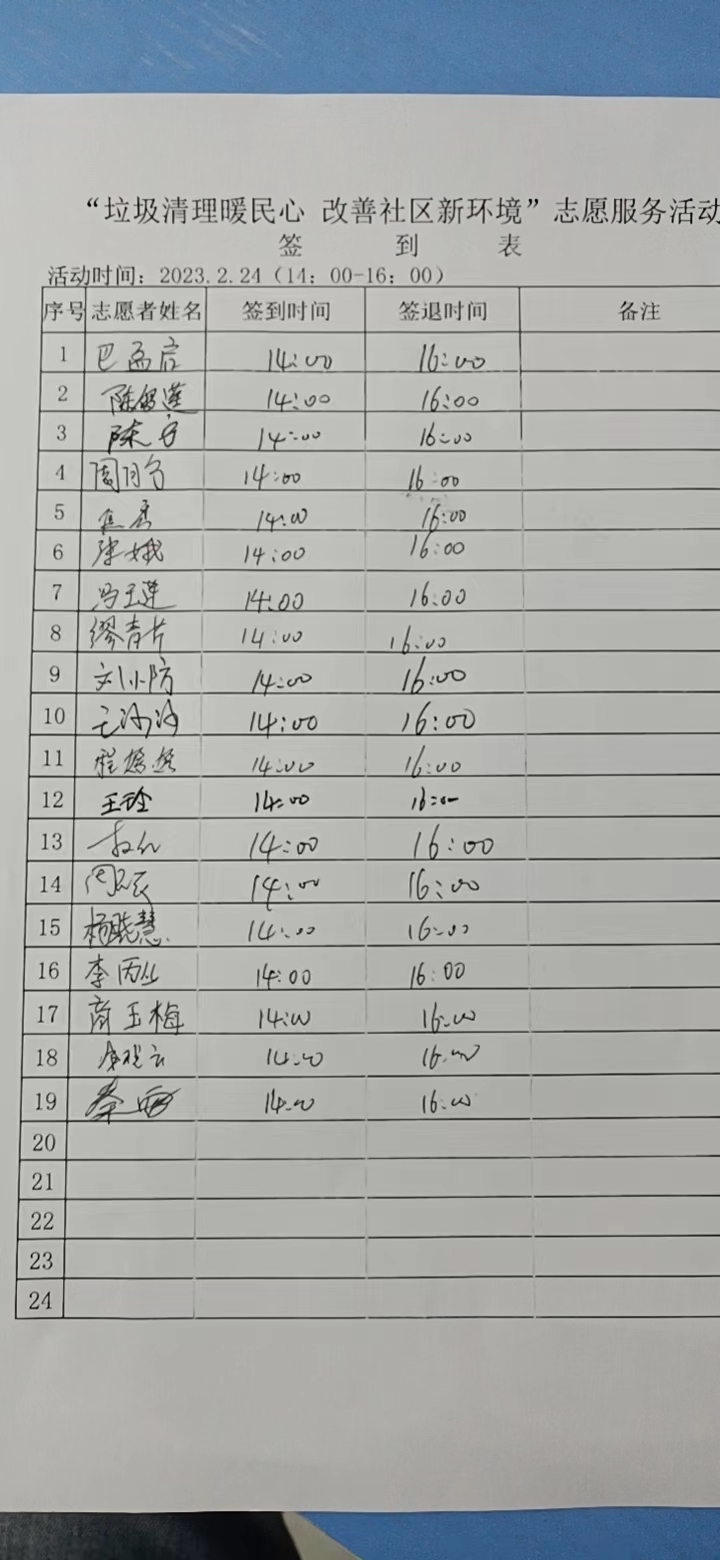 “垃圾清理暖民心 改善社区新环境”志愿服务活动
签 到 表
活动时间：2023.2.24（14：00-16：00）
序号 志愿者姓名 签到时间 签退时间 备注
1 14:00 16:00
2 14:00 16:00
3 14:00 16:00
4 14:00 16:00
5 14:00 16:00
6 张娥 14:00 16:00
7 冯玉莲 14:00 16:00
8 缪青片 14:00 16:00
9 刘小防 14:00 16:00
10 14:00 16:00
11 14:00 16:00
12 王玲 14:00 16:00
13 14:00 16:00
14 14:00 16:00
15 杨晓慧 14:00 16:00
16 李丙 14:00 16:00
17 商玉梅 14:00 16:00
18 14:00 16:00
19 14:00 16:00
20
21
22
23
24